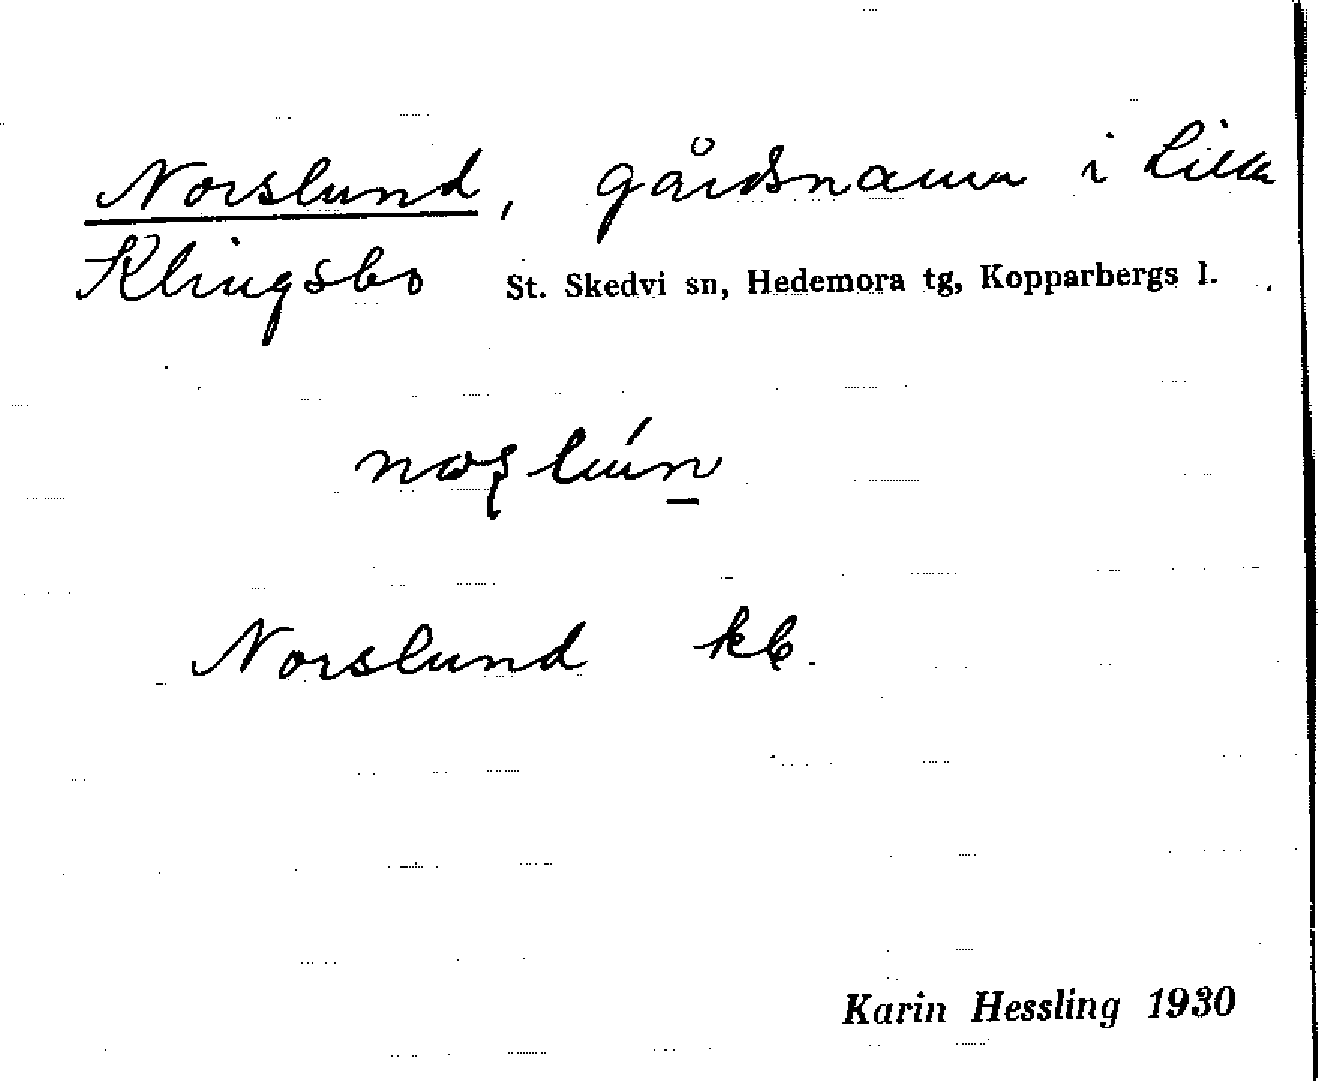 Norslund, gårdsnamn i Lilla
Klingsbo St. Skedvi sn, Hedemora tg, Kopparbergs l.
noʂlún̲
Norslund kb.
Karin Hessling 1930